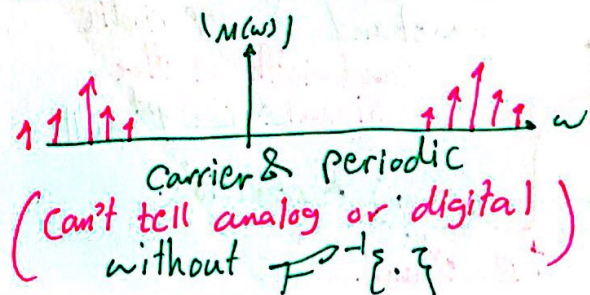 |M(ω)|
ω
carrier & periodic
(can't tell analog or digital)
without F⁻¹{.}